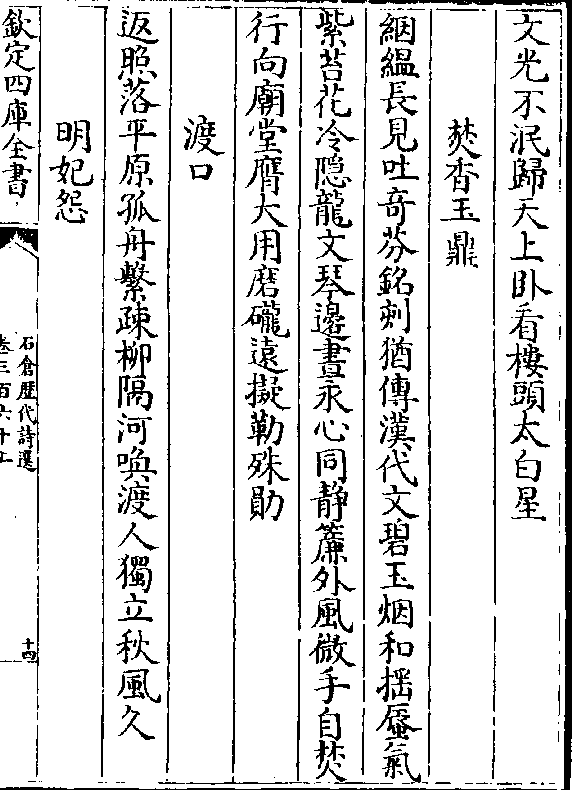 文光不泯歸天上卧看樓頭太白星
焚香玉鼎
絪縕長見吐奇芬銘刻猶傳漢代文碧玉烟和揺蜃氣
紫苔花冷隠龍文琴邉晝永心同静簾外風微手自焚
行向廟堂膺大用磨礲遠擬勒殊勛
渡口
返照落平原孤舟繫疎柳隔河喚渡人獨立秋風久
明妃怨
欽定四庫全書
石倉歴代詩選
卷三百六十
十四